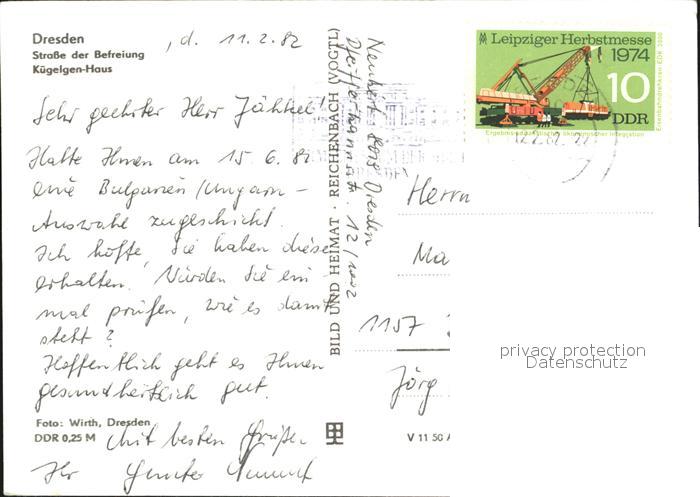 Dresden
Straße der Befreiung
Kügelgen-Haus
, d. 11.2.82
Sehr geehrter Herr Jähkel!
Hatte Ihnen am 15.6.81
eine Bulgarien/Ungarn-
Auswahl zugeschickt.
Ich hoffe, Sie haben diese
erhalten. Würden Sie ein-
mal prüfen, wie es damit
steht?
Hoffentlich geht es Ihnen
gesundheitlich gut.
Mit besten Grüßen
Ihr Günter
Foto: Wirth, Dresden
DDR 0,25 M
BILD UND HEIMAT · REICHENBACH (VOGTL)
8018 Dresden
12/1002
Leipziger Herbstmesse
1974
10
DDR
Eisenbahndrehkran EDK 2000
Ergebnis sozialistischer ökonomischer Integration
DRESDEN
Herrn
Ma
1157
Jörg
V 11 50 A
privacy protection
Datenschutz